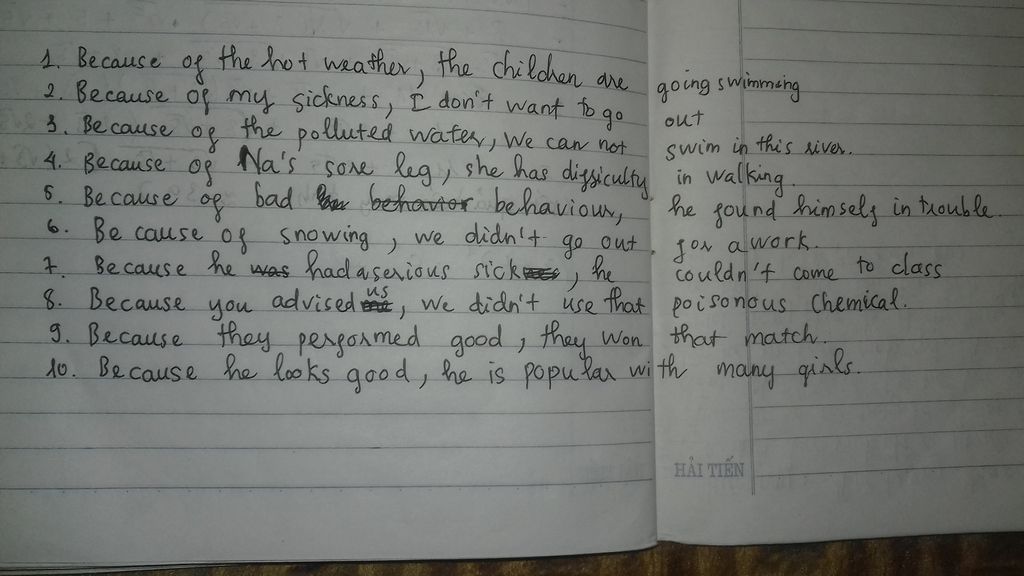 1. Because of the hot weather, the children are going swimming
2. Because of my sickness, I don't want to go out
3. Because of the polluted water, we can not swim in this river.
4. Because of Na's sore leg, she has difficulty in walking.
5. Because of bad behavior behaviour, he found himself in trouble.
6. Because of snowing, we didn't go out for a work.
7. Because he was had a serious sick, he couldn't come to class
8. Because you advised us, we didn't use that poisonous chemical.
9. Because they performed good, they won that match.
10. Because he looks good, he is popular with many girls.
HẢI TIẾN